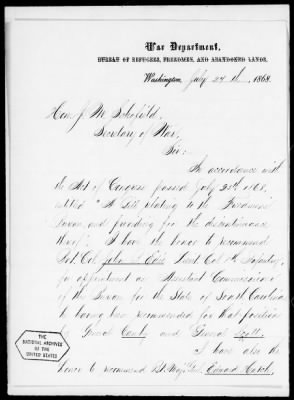 War Department,
BUREAU OF REFUGEES, FREEDMEN, AND ABANDONED LANDS,
Washington, July 24th, 1868.
Hon. J. M. Schofield,
Secretary of War,
Sir:
In accordance with
the Act of Congress passed July 1868,
entitled "A bill relating to the Freedmens
Bureau and providing for the discontinuance
thereof" I have the honor to recommend
Bvt. Col. John R. Edie Lieut Col. Infantry,
for appointment as Assistant Commissioner
of this Bureau for the State of South Carolina
he having been recommended for that position
by General Canby and General Scott.
I have also the
honor to recommend Bt. Maj. Genl. Edward Hatch,
THE
NATIONAL ARCHIVES
OF THE
UNITED STATES